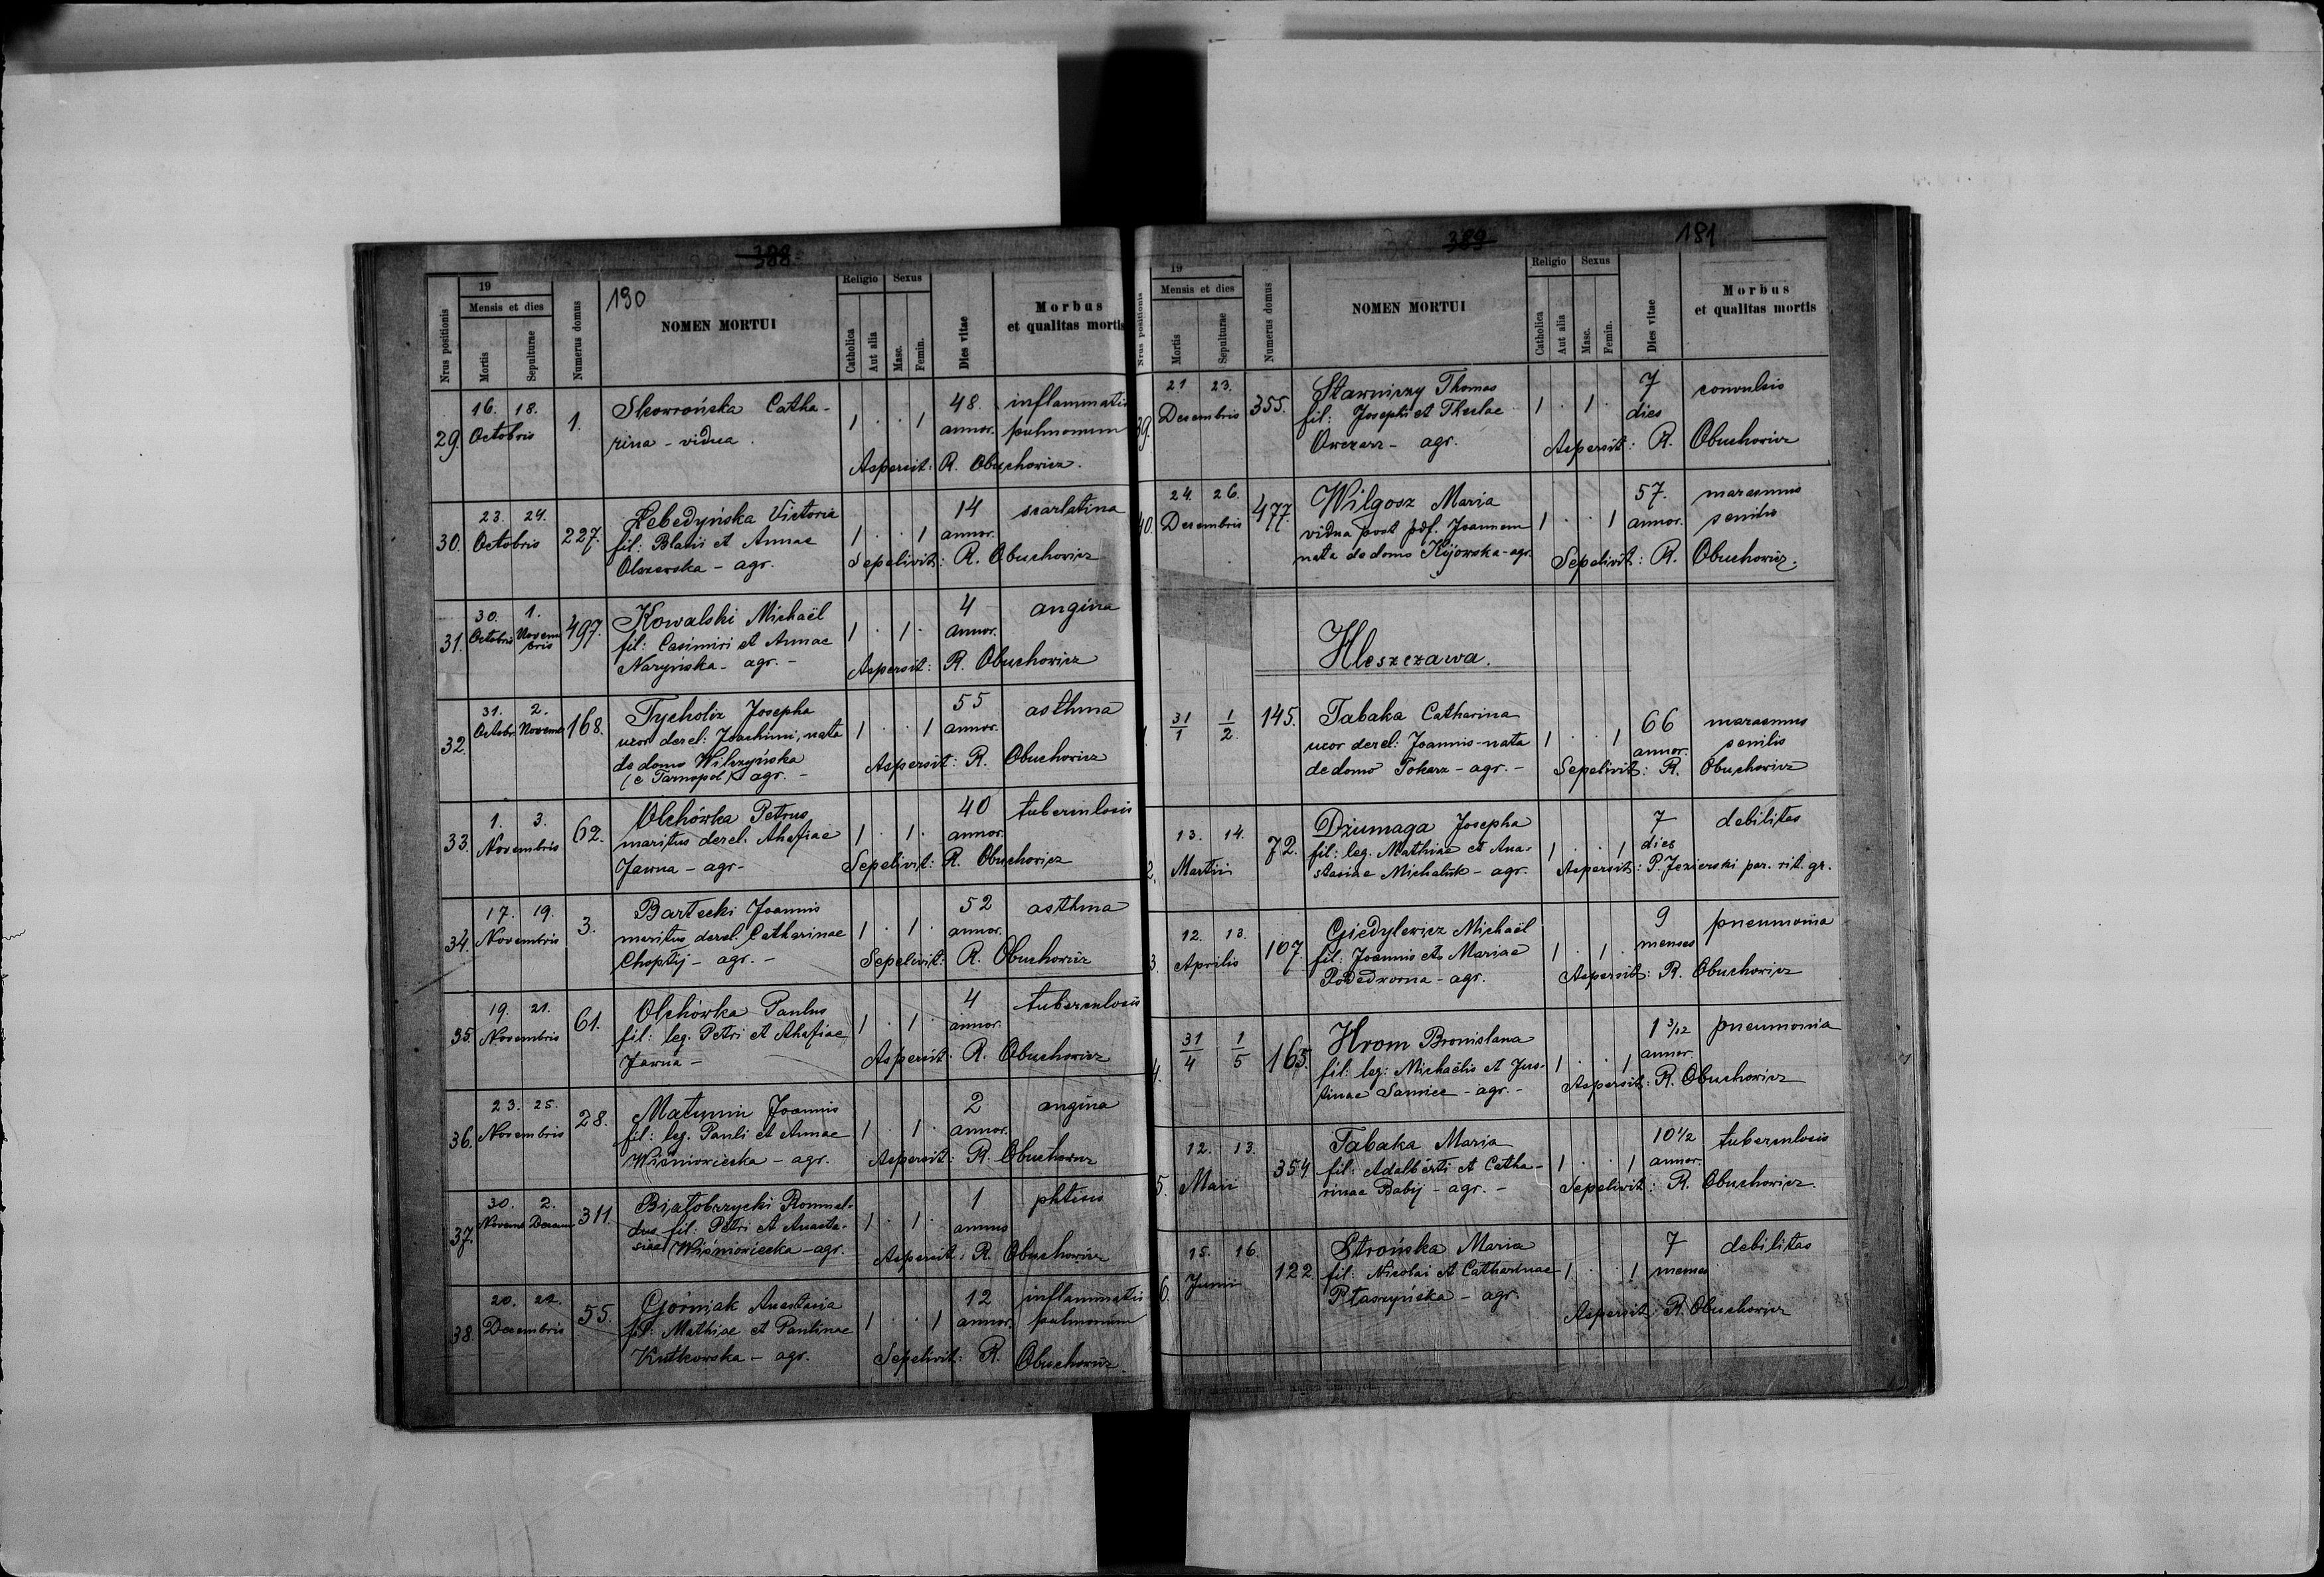 388.
190
19
Mensis et dies
Religio Sexus
Nrus positionis
Mortis
Sepulturae
Numerus domus
NOMEN MORTUI
Catholica
Aut alia
Masc.
Femin.
Dies vitae
Morbus
et qualitas mortis
29. 16. 18. Octobris 1.
Skowrońska Catha-
rina - vidua.
1 . . 1 48. annor. inflammatio
pulmonum
Aspersit: R. Obuchowicz.
30. 23. 24. Octobris 227.
Lebedyńska Victoria
fil: Blasii et Annae
Olszewska - agr.
1 . . 1 14 annor. scarlatina
Sepelivit: R. Obuchowicz
31. 30. Octobris 1. Novem
bris 497.
Kowalski Michaël
fil: Casimiri et Annae
Nazyńska - agr. -
1 . 1 . 4 annor. angina
Aspersit: R. Obuchowicz
32. 31. Octobr. 2. Novemb 168.
Tycholiz Josepha
uxor derel: Joachimi, nata
de domo Wilczyńska
(e Tarnopol) agr. -
1 . . 1 55 annor. asthma
Aspersit: R. Obuchowicz
33. 1. 3. Novembris 62.
Olchówka Petrus
maritus derel. Ahafiae
Jawna - agr-
1 . 1 . 40 annor. tuberculosis
Sepelivit: R. Obuchowicz
34. 17. 19. Novembris 3.
Bartecki Joannis
maritus derel. Catharinae
Choptij - agr. -
1 . 1 . 52 annor. asthma
Sepelivit: R. Obuchowicz
35. 19. 21. Novembris 61.
Olchówka Paulus
fil: leg. Petri et Ahafiae
Jawna -
1 . 1 . 4 annor. tuberculosis
Aspersit: R. Obuchowicz
36. 23. 25. Novembris 28.
Matunin Joannis
fil: leg. Pauli et Annae
Wiśniowiecka - agr.
1 . 1 . 2 annor. angina
Aspersit: R. Obuchowicz
37. 30. Novemb 2. Decem 311.
Białobrzycki Romual-
dus fil: Petri et Anasta-
siae Wiśniowiecka - agr.
1 . 1 . 1 annus phtisis
Aspersit: R. Obuchowicz
38. 20. 22. Decembris 55.
Górniak Anastasia
fil: Mathiae et Paulinae
Kutkowska - agr.
1 . . 1 12 annor. inflammatio
pulmonum
Sepelivit: R. Obuchowicz.
389
181
19
Mensis et dies
Religio Sexus
Nrus positionis
Mortis
Sepulturae
Numerus domus
NOMEN MORTUI
Catholica
Aut alia
Masc.
Femin.
Dies vitae
Morbus
et qualitas mortis
39. 21 23. Decembris 355.
Stawniczy Thomas
fil: Josephi et Theclae
Owczarz - agr.
1 . 1 . 7 dies convulsio
Aspersit: R. Obuchowicz
40. 24. 26. Decembris 477.
Wilgosz Maria
vidua post pdf. Joannem
nata de domo Kijowska - agr.
1 . . 1 57. annor. marasmus
senilis
Sepelivit: R. Obuchowicz.
Hleszczawa.
1. 31/1 1/2 145.
Tabaka Catharina
uxor derel: Joannis - nata
de domo Tokarz - agr. -
1 . . 1 66 annor. marasmus
senilis
Sepelivit: R. Obuchowicz
2. 13. 14. Martii 72.
Dżumaga Josepha
fil: leg. Mathiae et Ana-
stasiae Michaluk - agr.
1 . . 1 7 dies debilitas
Aspersit: P. Jezierski par. rit. gr.
3. 12. 13. Aprilis 107.
Giedylewicz Michaël
fil: Joannis et Mariae
Podedworna - agr.
1 . 1 . 9 menses pneumonia
Aspersit: R. Obuchowicz
4. 31/4 1/5 165.
Hrom Bronislava
fil: leg: Michaëlis et Jus-
tinae Sawicz - agr. -
1 . . 1 1 3/12 annor. pneumonia
Aspersit: R. Obuchowicz
5. 12. 13. Maii 354
Tabaka Maria
fil: Adalberti et Catha-
rinae Babij - agr. -
1 . . 1 10 1/2 annor. tuberculosis
Sepelivit: R. Obuchowicz.
6. 15. 16. Junii 122
Strońska Maria
fil: Nicolai et Catharinae
Ptaszyńska - agr.
1 . . 1 7 menses debilitas
Aspersit: R. Obuchowicz